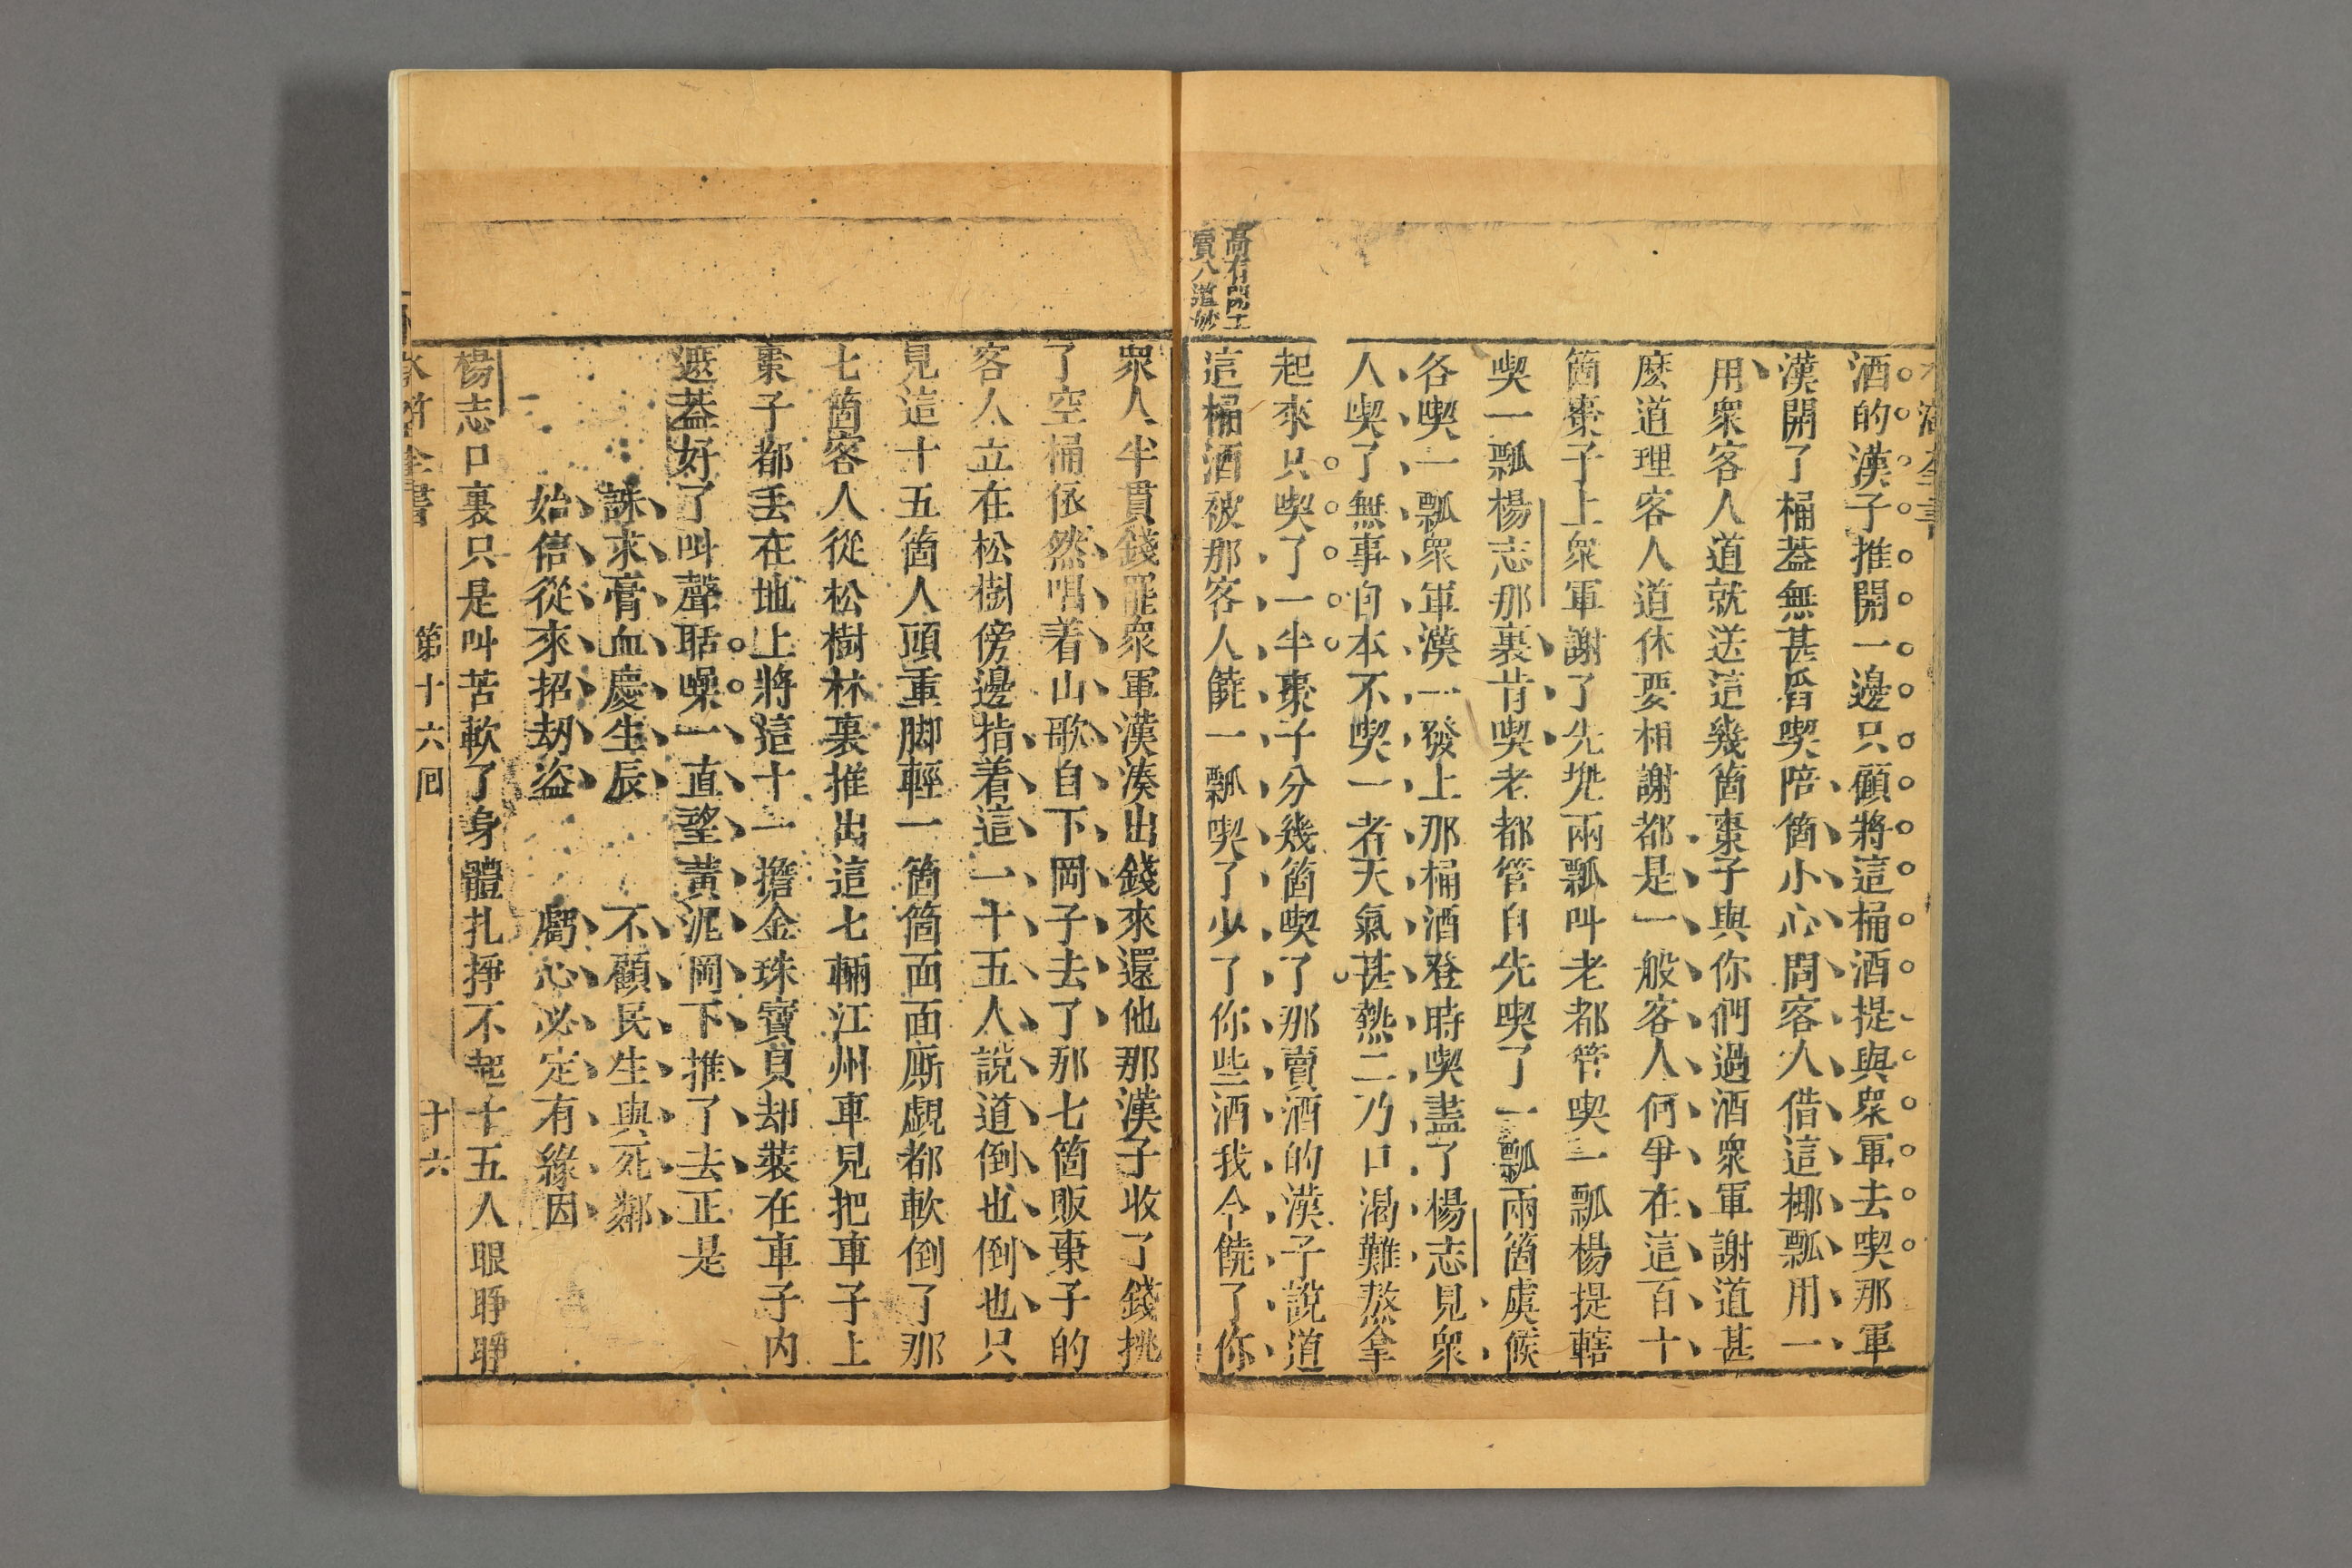 酒的漢子推開一邊只顧將這桶酒提與衆軍去喫那軍
漢開了桶葢無甚舀喫陪箇小心問客人借這椰瓢用一
用衆客人道就送這幾箇棗子與你們過酒衆軍謝道甚
麽道理客人道休要相謝都是一般客人何爭在這百十
箇棗子上衆軍謝了先兠兩瓢叫老都管喫一瓢楊提轄
喫一瓢楊志那裏肯喫老都管自先喫了一瓢兩箇虞候
各喫一瓢衆軍漢一發上那桶酒登時喫盡了楊志見衆
人喫了無事自本不喫一者天氣甚熱二乃口渴難熬拿
起來只喫了一半棗子分幾箇喫了那賣酒的漢子說道
這桶酒被那客人饒一瓢喫了少了你些酒我今饒了你
衆人半貫錢罷衆軍漢湊出錢來還他那漢子收了錢挑
了空桶依然唱着山歌自下岡子去了那七箇販棗子的
客人立在松樹傍邊指着這一十五人說道倒也倒也只
見這十五箇人頭重脚輕一箇箇面面厮覷都軟倒了那
七箇客人從松樹林裏推出這七輛江州車兒把車子上
棗子都丢在地上將這十一擔金珠寶貝却裝在車子内
遮葢好了叫聲聒噪一直望黃泥岡下推了去正是
誅求膏血慶生辰 不顧民生與死鄰
始信從來招刼盜 虧心必定有緣因
楊志口裏只是叫苦軟了身體扎掙不起十五人眼睜睜
全書 第十六囘 十六